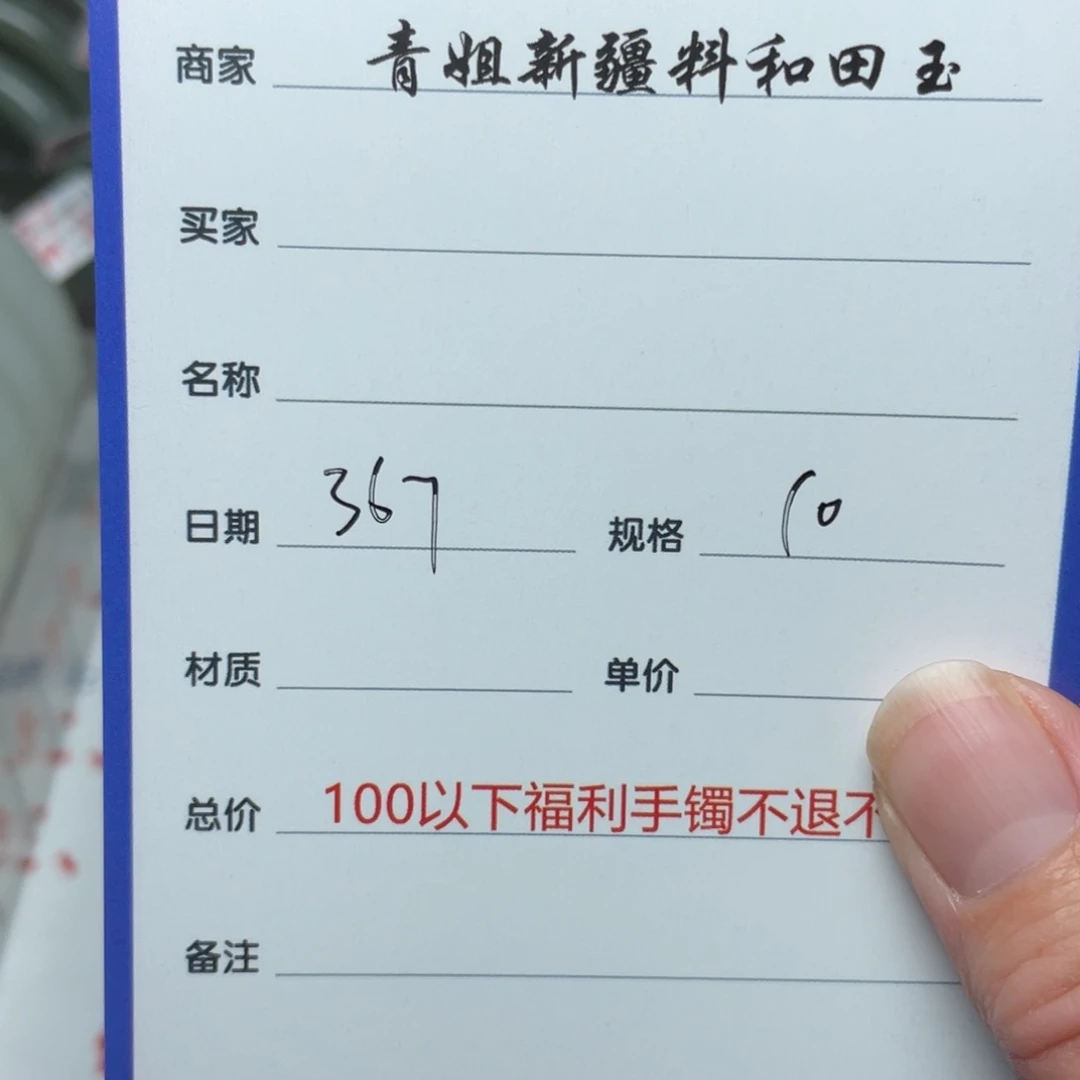 商家 青姐新疆料和田玉
买家
名称
日期 367 规格 10
材质 单价
总价 100以下福利手镯不退不
备注